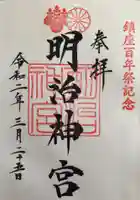 鎮座百年祭記念
奉拝
明治神宮
令和二年三月二十五日